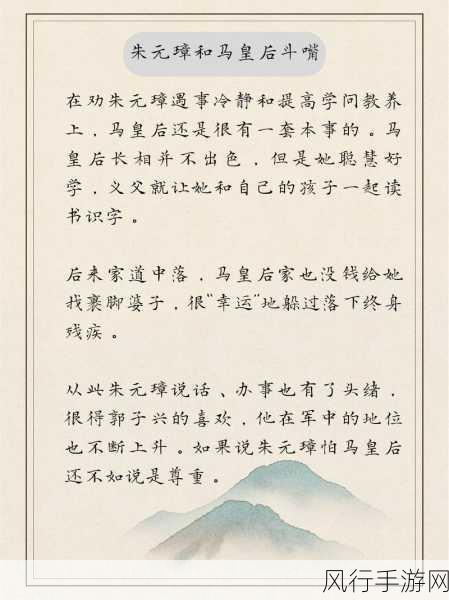 朱元璋和马皇后斗嘴
在劝朱元璋遇事冷静和提高学问教养
上，马皇后还是很有一套本事的。马
皇后长相并不出色，但是她聪慧好
学，义父就让她和自己的孩子一起读
书识字。
后来家道中落，马皇后家也没钱给她
找裹脚婆子，很“幸运”地躲过落下终身
残疾。
从此朱元璋说话、办事也有了头绪，
很得郭子兴的喜欢，他在军中的地位
也不断上升。如果说朱元璋怕马皇后
还不如说是尊重。
风行手游网